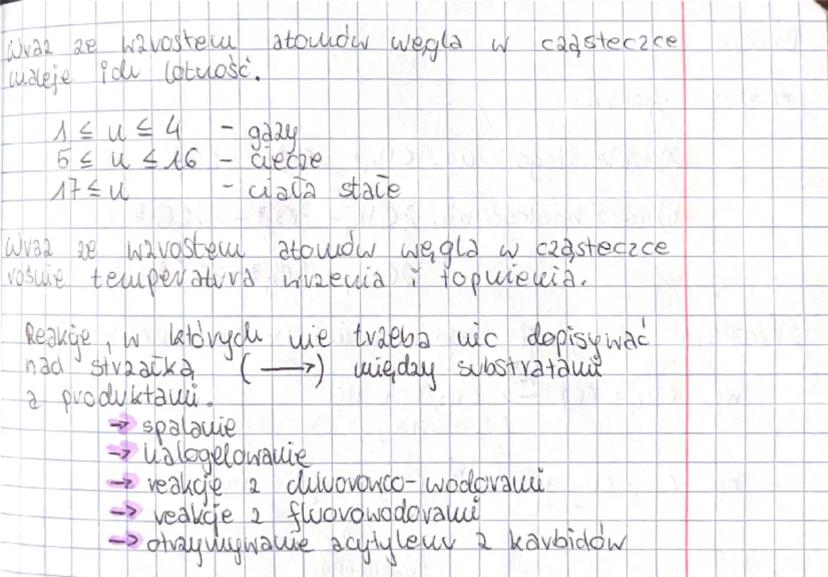 Wraz ze wzrostem atomów węgla w cząsteczce
maleje ich lotność.
1 ≤ n ≤ 4 - gazy
5 ≤ n ≤ 16 - ciecze
17 ≤ n - ciała stałe
Wraz ze wzrostem atomów węgla w cząsteczce
rośnie temperatura wrzenia i topnienia.
Reakcje, w których nie trzeba nic dopisywać
nad strzałką (⟶) między substratami
a produktami.
→ spalanie
→ halogelowanie
→ reakcje z chlorowco-wodorami
→ reakcje z fluorowodorami
→ otrzymywanie acytylenu z karbidów